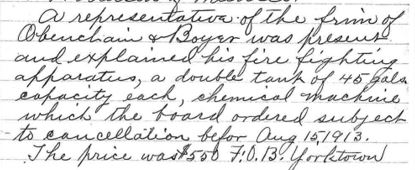 A representative of the firm of
Obenchain & Boyer was present
and explained his fire fighting
apparatus, a double tank of 45 gals
capacity each, chemical machine
which the board ordered subject
to cancellation befor Aug 15, 1913.
The price was $550 F.O.B. Yorktown